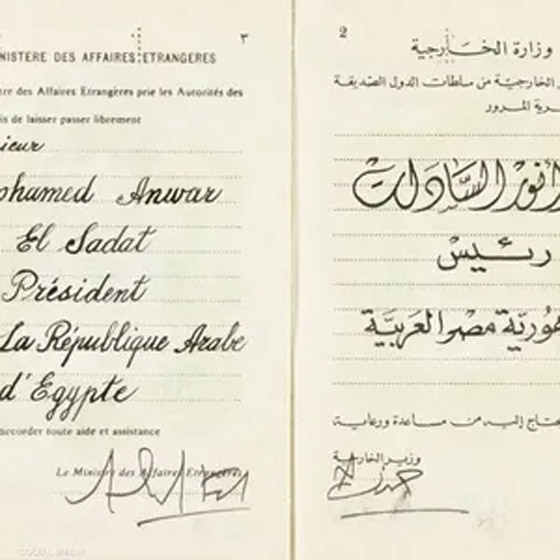 ٣
NISTERE DES AFFAIRES ETRANGERES
tre des Affaires Etrangères prie les Autorités des
is de laisser passer librement
ieur
ohamed Anwar
El Sadat
Président
La République Arabe
d'Egypte
accorder toute aide et assistance
Le Ministre des Affaires Etrangères
2
وزارة الخارجية
الخارجية من سلطات الدول الصديقة
رية المرور
أنور السادات
رئيس
هورية مصر العربية
حتاج إليه من مساعدة ورعاية
وزير الخارجية